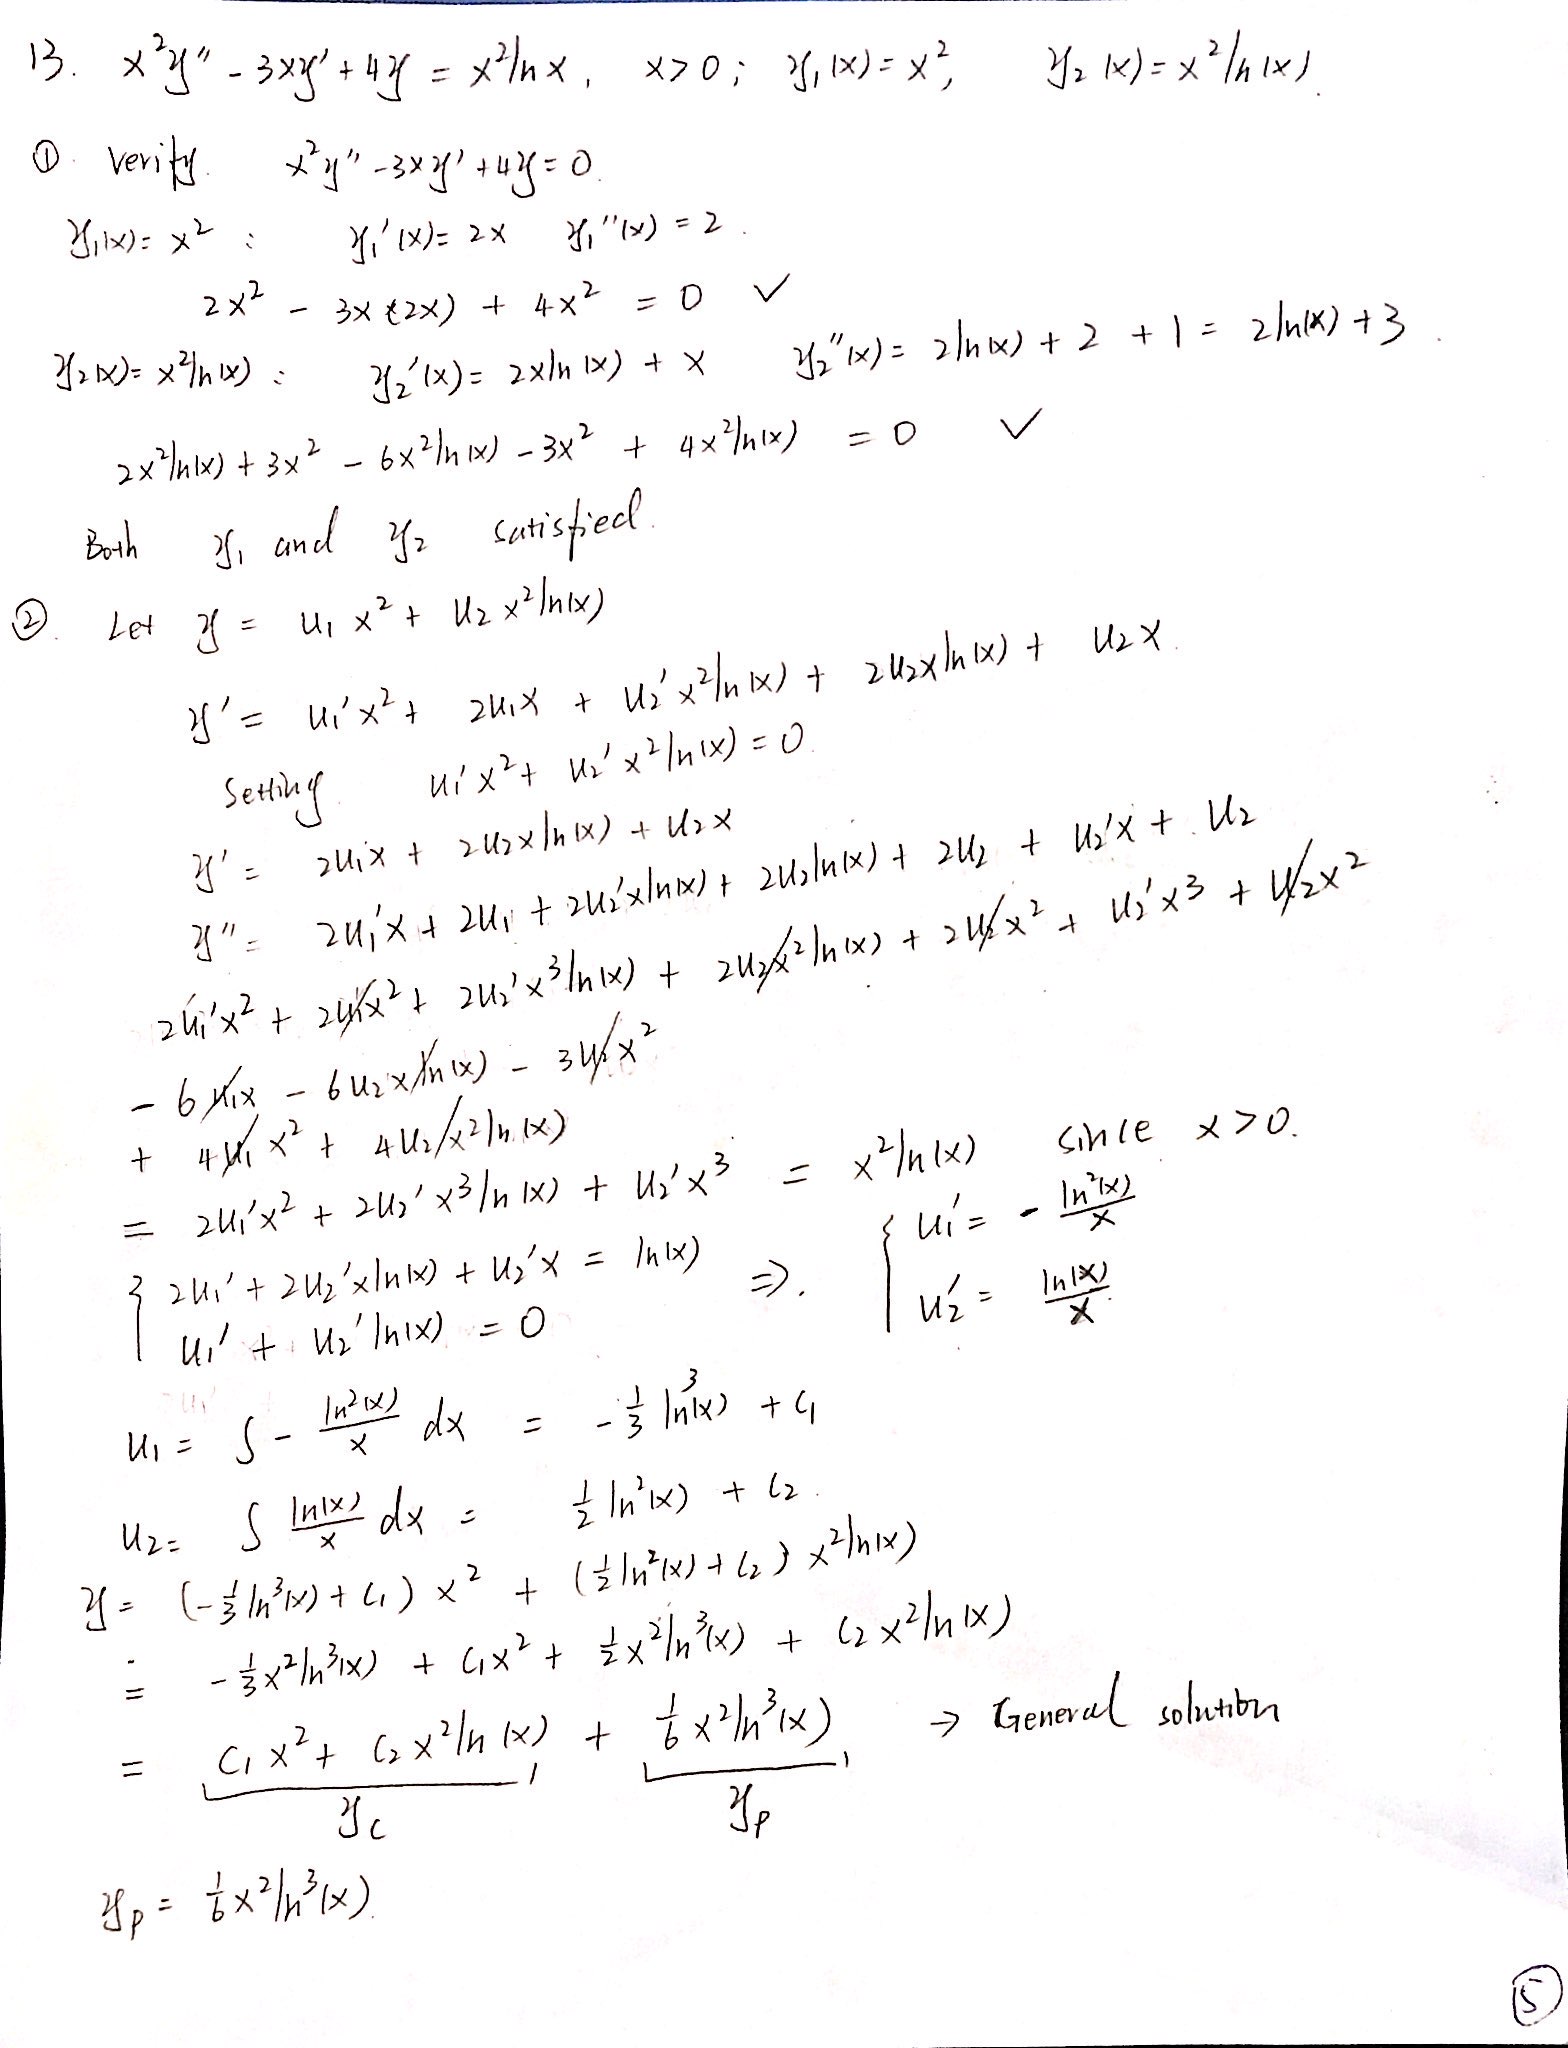 13. x²y'' - 3xy' + 4y = x²lnx, x>0; y₁(x)=x², y₂(x)=x²ln(x).
① verify. x²y'' - 3xy' + 4y = 0.
y₁(x)= x² : y₁'(x)= 2x y₁''(x) = 2.
2x² - 3x(2x) + 4x² = 0 ✓
y₂(x)= x²ln(x) : y₂'(x)= 2xln(x) + x y₂''(x)= 2ln(x) + 2 + 1 = 2ln(x) + 3.
2x²ln(x) + 3x² - 6x²ln(x) - 3x² + 4x²ln(x) = 0 ✓
Both y₁ and y₂ satisfied.
②. Let y = u₁x² + u₂x²ln(x)
y' = u₁'x² + 2u₁x + u₂'x²ln(x) + 2u₂xln(x) + u₂x.
Setting u₁'x² + u₂'x²ln(x) = 0.
y' = 2u₁x + 2u₂xln(x) + u₂x
y'' = 2u₁'x + 2u₁ + 2u₂'xln(x) + 2u₂ln(x) + 2u₂ + u₂'x + u₂
2u₁'x² + 2u₁x² + 2u₂'x³ln(x) + 2u₂x²ln(x) + 2u₂x² + u₂'x³ + u₂x²
- 6u₁x - 6u₂xln(x) - 3u₂x²
+ 4u₁x² + 4u₂x²ln(x)
= 2u₁'x² + 2u₂'x³ln(x) + u₂'x³ = x²ln(x) since x>0.
{ 2u₁' + 2u₂'xln(x) + u₂'x = ln(x) ⇒. { u₁' = - ln²(x)/x
u₁' + u₂'ln(x) = 0 u₂' = ln(x)/x.
u₁ = ∫ - ln²(x)/x dx = -1/3 ln³(x) + C₁
u₂ = ∫ ln(x)/x dx = 1/2 ln²(x) + C₂.
y = (-1/3 ln³(x) + C₁) x² + (1/2 ln²(x) + C₂) x²ln(x)
= -1/3 x²ln³(x) + C₁x² + 1/2 x²ln³(x) + C₂x²ln(x)
= C₁x² + C₂x²ln(x) + 1/6 x²ln³(x) → General solution
y_c y_p
y_p = 1/6 x²ln³(x).
⑤